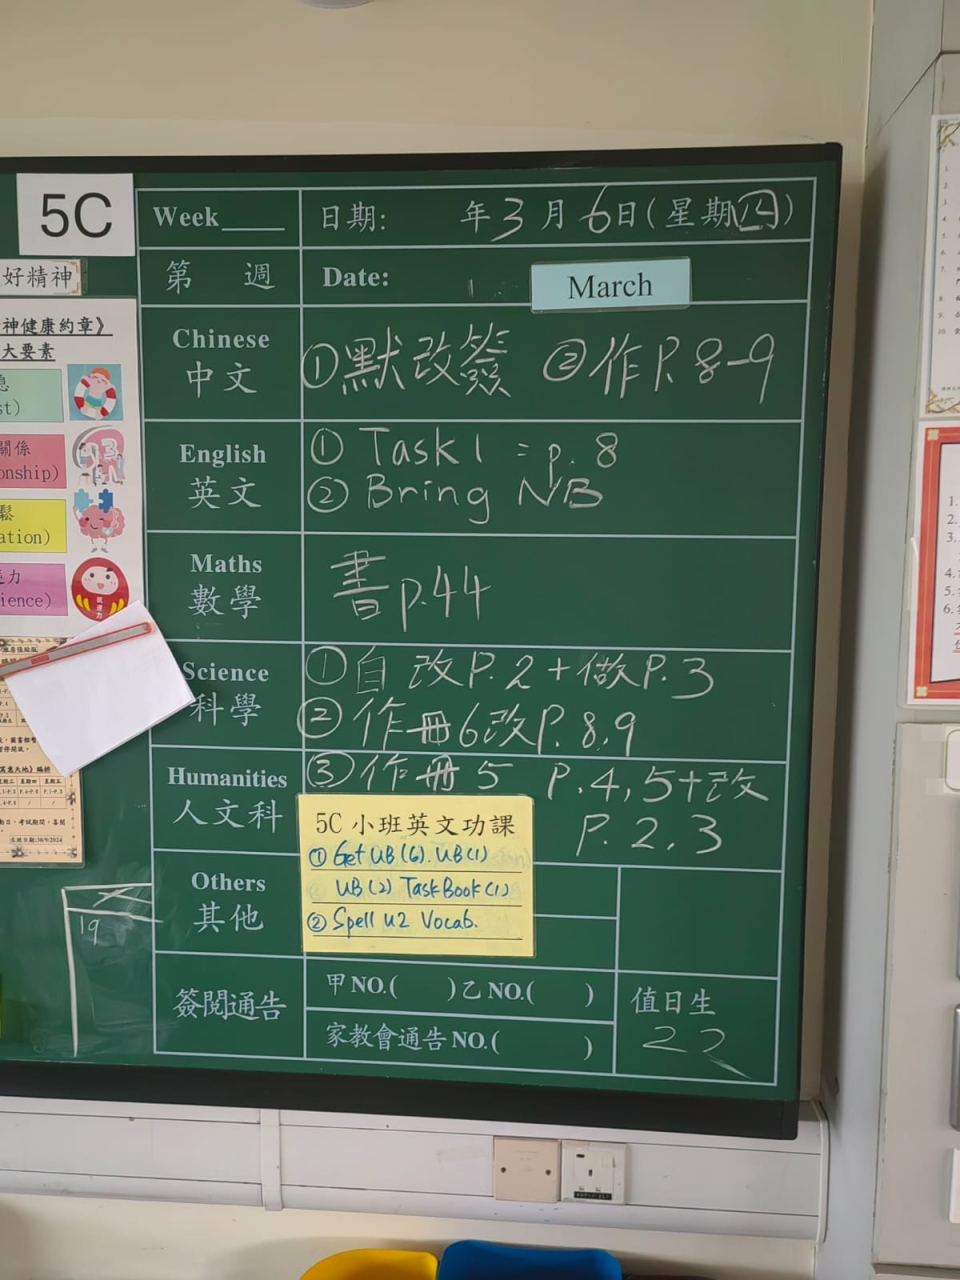 5C
Week____ 日期: 年3月6日(星期四)
第 週 Date: March
好精神
神健康約章》
大要素
關係
onship)
鬆
ation)
力
ience)
Chinese
中文
①默改簽 ②作P.8-9
English
英文
① Task 1 : p. 8
② Bring NB
Maths
數學
書p.44
Science
科學
①自改P.2+做P.3
②作冊6改P.8,9
Humanities
人文科
③作冊5 P.4,5+改
P.2,3
5C 小班英文功課
① Get UB(6). UB(1)
UB(2) TaskBook(1)
② Spell U2 Vocab.
Others
其他
19
簽閱通告
甲NO.( )乙NO.( )
家教會通告NO.( )
值日生
22